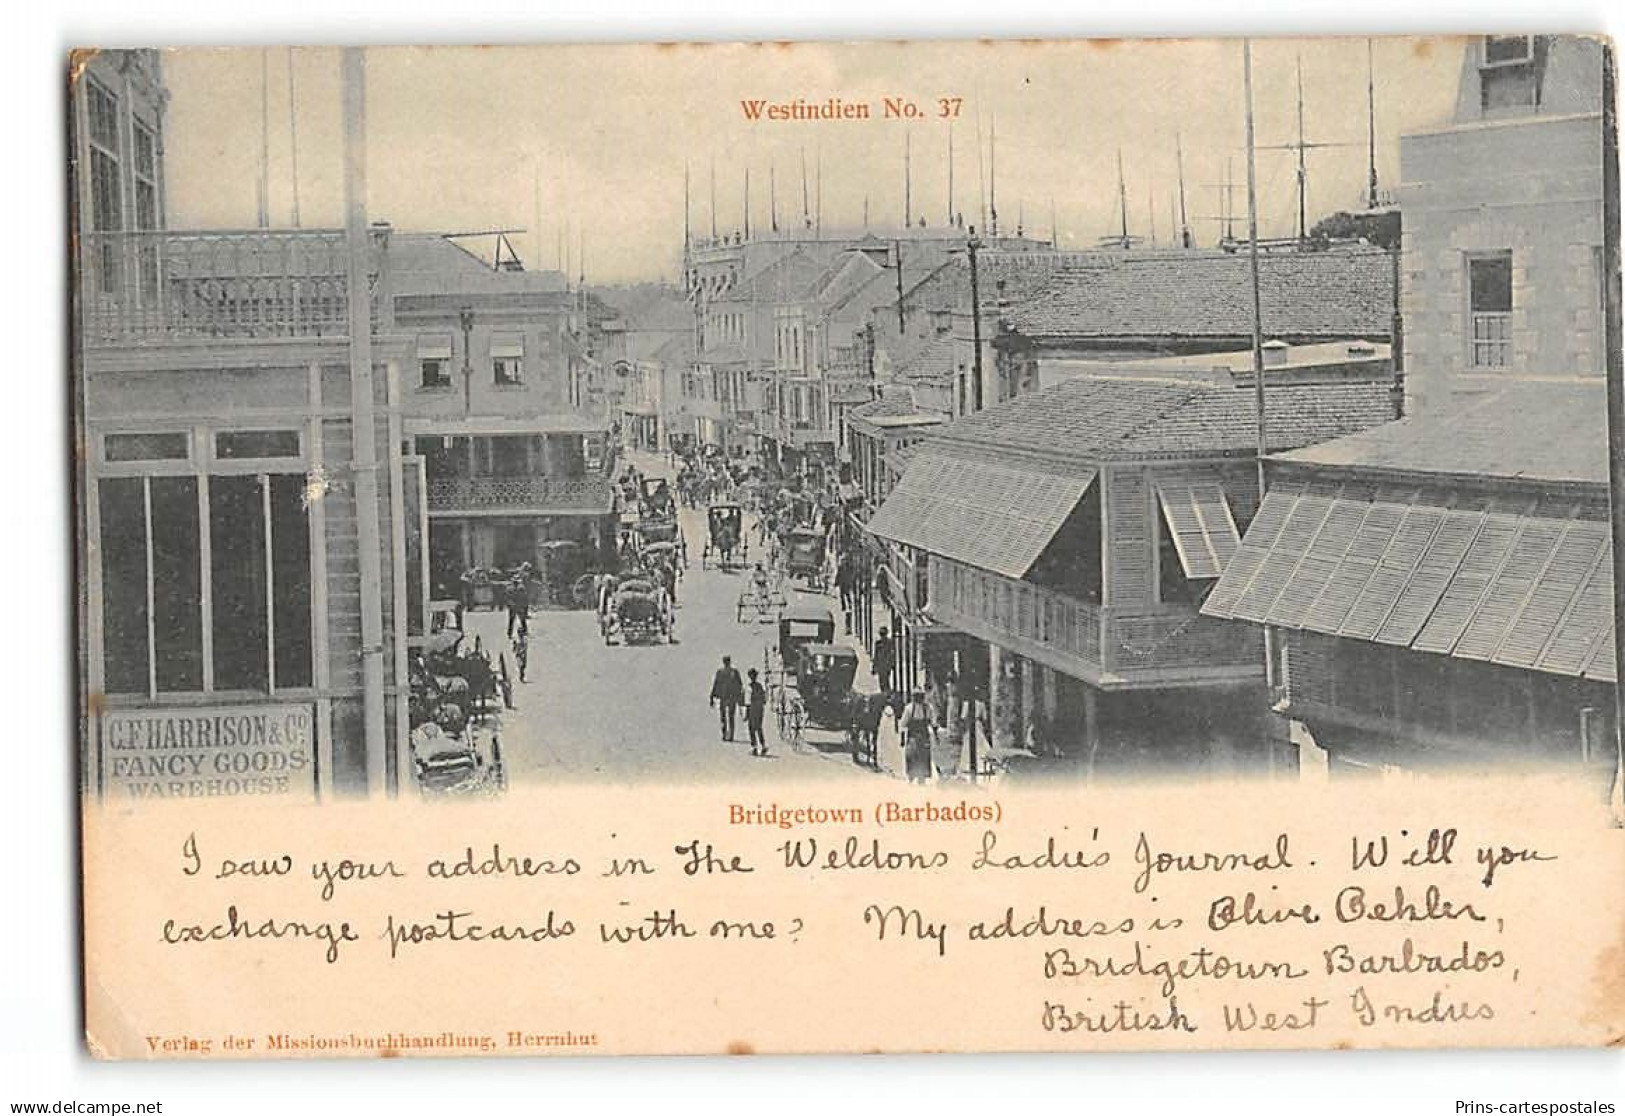 Westindien No. 37
C.F. HARRISON & Co.
FANCY GOODS
WAREHOUSE
Bridgetown (Barbados)
I saw your address in The Weldons Ladie's Journal. Will you
exchange postcards with me? My address is Olive Oehler,
Bridgetown Barbados,
British West Indies
Verlag der Missionsbuchhandlung, Herrnhut
www.delcampe.net
Prins-cartespostales